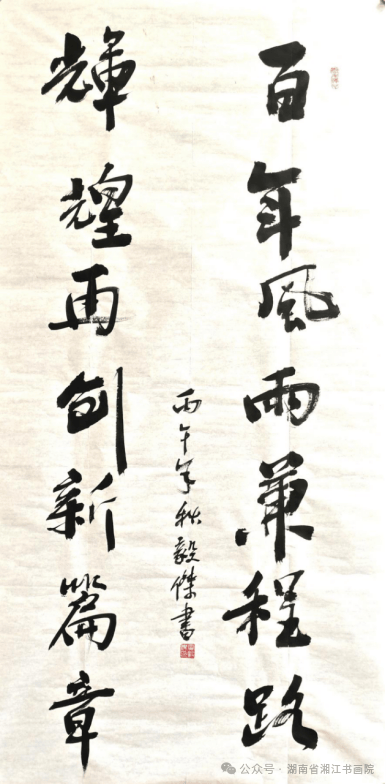 百年風雨兼程路
輝煌再創新篇章
丙午年秋毅傑書
公众号 · 湖南省湘江书画院